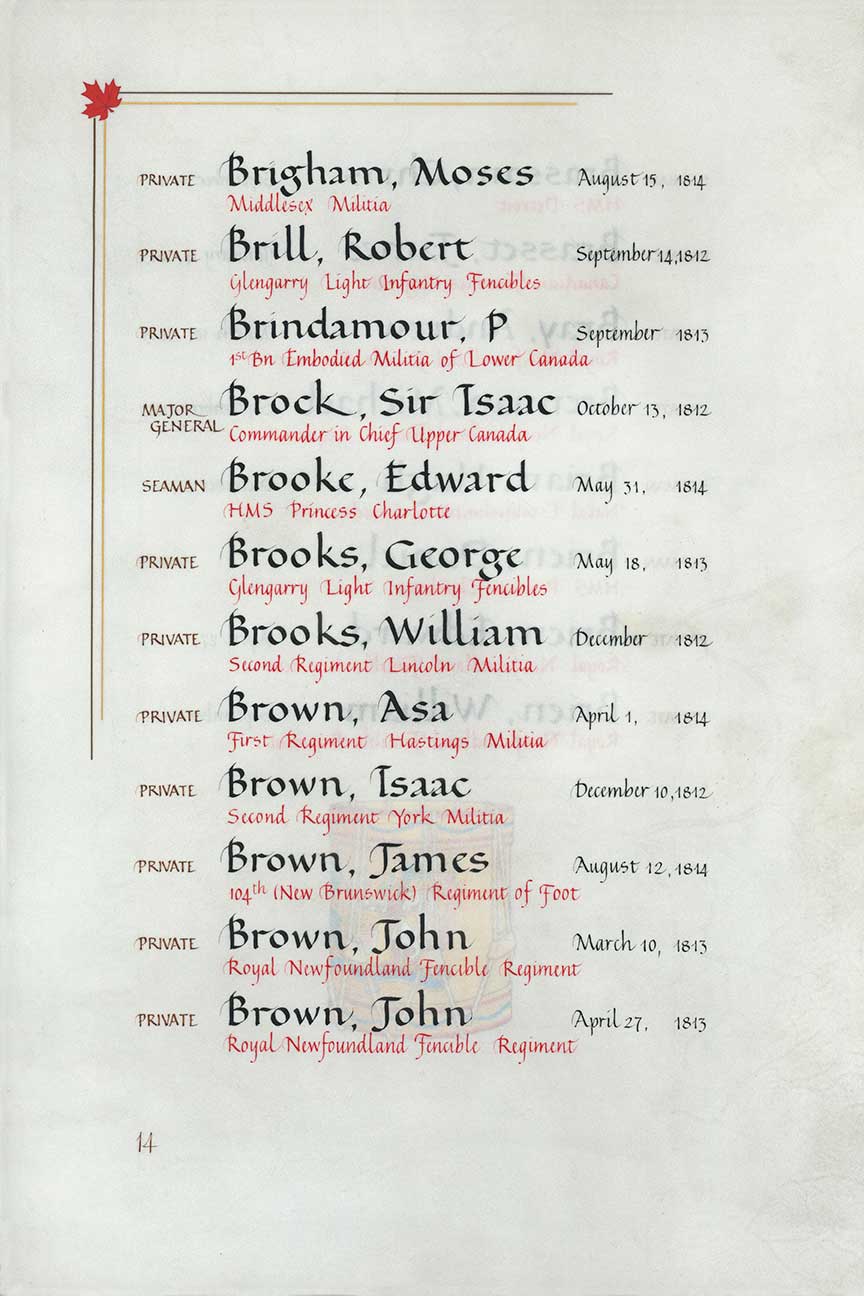 PRIVATE Brigham, Moses August 15, 1814
Middlesex Militia
PRIVATE Brill, Robert September 14, 1812
Glengarry Light Infantry Fencibles
PRIVATE Brindamour, P September 1813
1st Bn Embodied Militia of Lower Canada
MAJOR GENERAL Brock, Sir Isaac October 13, 1812
Commander in Chief Upper Canada
SEAMAN Brooke, Edward May 31, 1814
HMS Princess Charlotte
PRIVATE Brooks, George May 18, 1813
Glengarry Light Infantry Fencibles
PRIVATE Brooks, William December 1812
Second Regiment Lincoln Militia
PRIVATE Brown, Asa April 1, 1814
First Regiment Hastings Militia
PRIVATE Brown, Isaac December 10, 1812
Second Regiment York Militia
PRIVATE Brown, James August 12, 1814
104th (New Brunswick) Regiment of Foot
PRIVATE Brown, John March 10, 1813
Royal Newfoundland Fencible Regiment
PRIVATE Brown, John April 27, 1813
Royal Newfoundland Fencible Regiment
14